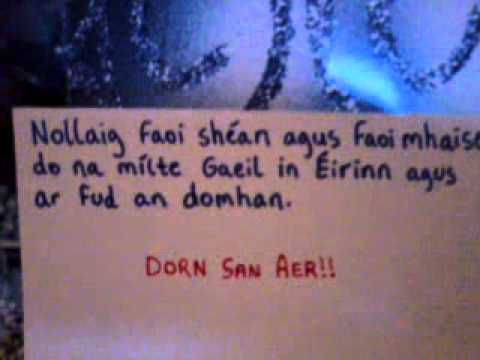 Nollaig Faoi shéan agus Faoi mhaise
do na mílte Gaeil in Éirinn agus
ar Fud an domhan.
DORN SAN AER!!